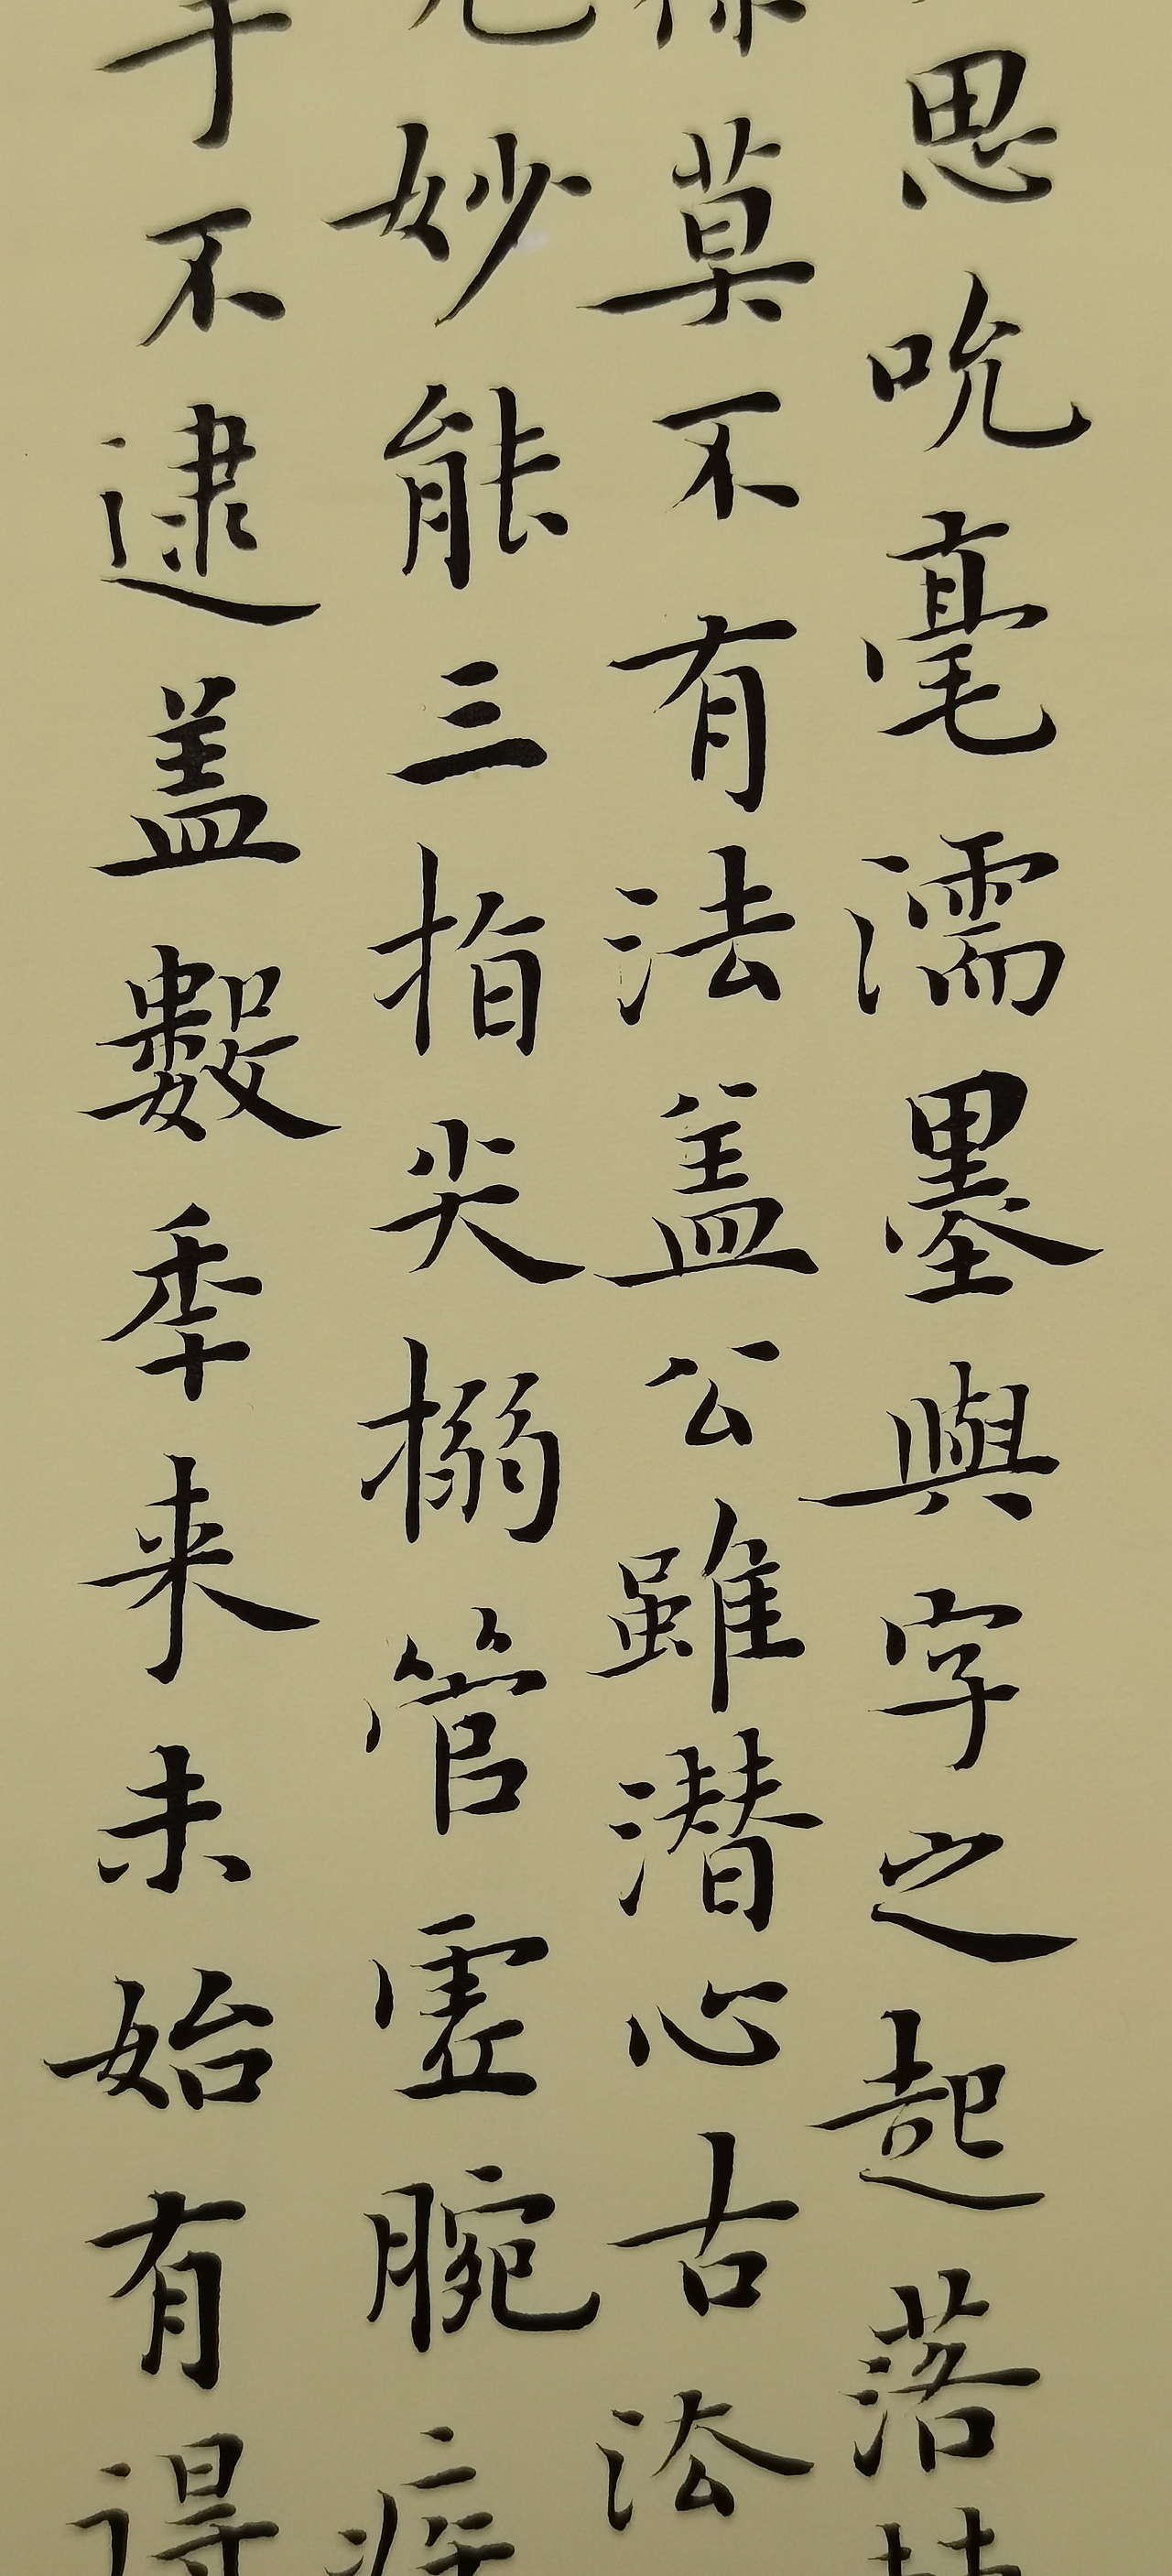 思吮毫濡墨與字之起落
莫不有法盖公雖潜心古法
妙能三指尖搦管虚腕
不逮盖數季来未始有得